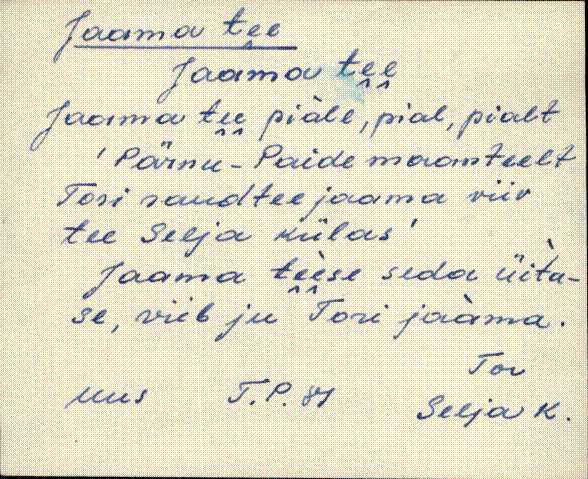 Jaama tee
Jaama tee
Jaama tee piàle, pial, pialt
'Pärnu-Paide maanteelt
Tori raudteejaama viiv
tee Selja külas'
Jaama tèèse seda üità-
se, viib ju Tori jaàma.
Tor
uus T.P. 81 Selja k.